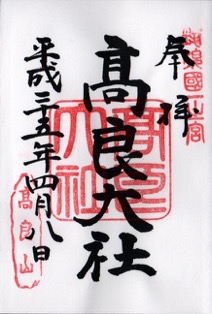 筑後國一之宮
奉拝
髙良大社
平成二五年四月八日
髙良山